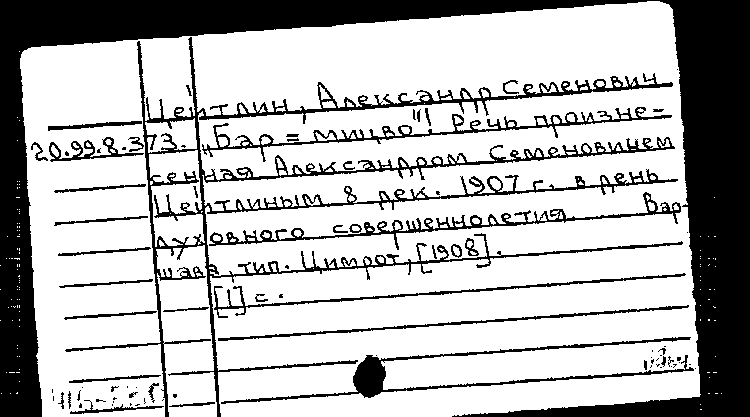 Цейтлин, Александр Семенович
20.99.8.373. „Бар = мицво"! Речь произне-
сенная Александром Семеновичем
Цейтлиным 8 дек. 1907 г. в день
духовного совершеннолетия. Вар-
шава, тип. Цимрот, [1908].
[1] с.